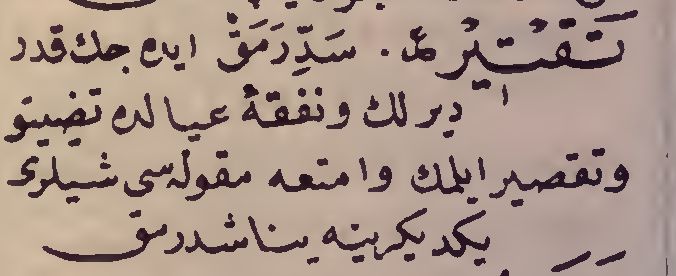 تَقْتِيْرْ . سَدِّ رَمَقْ ايده جك قدر
ديرلك و نفقهٔ عيالده تضييق
و تقصير ايلمك و امتعه مقوله سى شيلرى
يكديكرينه يناشدرمق